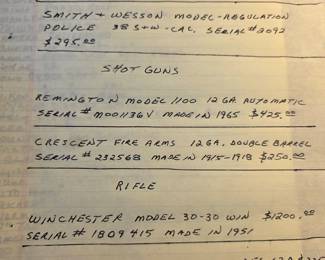 SMITH + WESSON MODEL-REGULATION
POLICE 38 S+W-CAL. SERIAL # 2092
$295.00
SHOT GUNS
REMINGTON MODEL 1100 12 GA. AUTOMATIC
SERIAL # M001136V MADE IN 1965 $425.00
CRESCENT FIRE ARMS 12 GA. DOUBLE BARREL
SERIAL # 232568 MADE IN 1915-1918 $250.00
RIFLE
WINCHESTER MODEL 30-30 WIN $1200.00
SERIAL # 1809415 MADE IN 1951